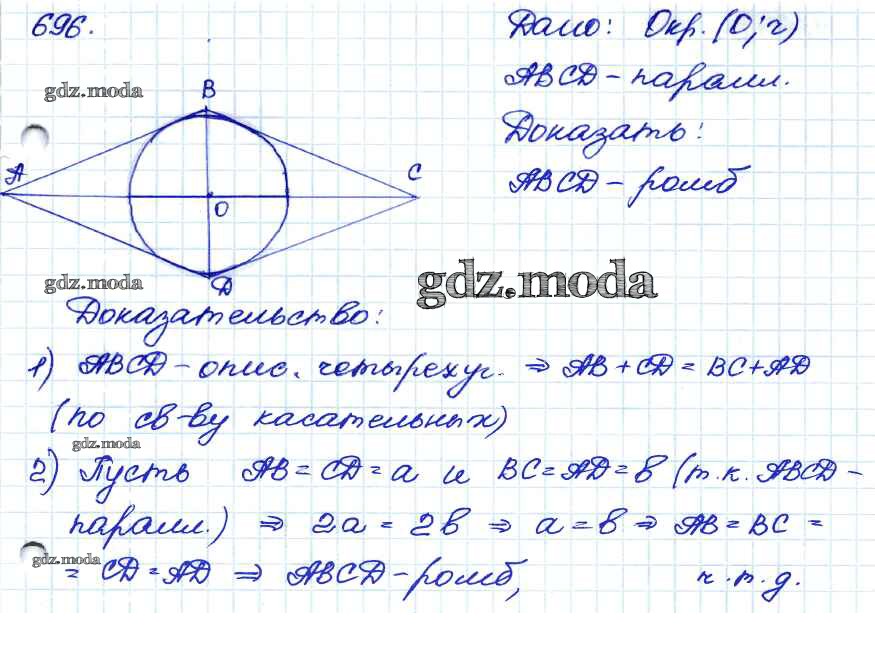 696.
Дано: Окр. (O; r)
ABCD - паралл.
Доказать:
ABCD - ромб
gdz.moda
B
A
C
O
D
gdz.moda
gdz.moda
Доказательство:
1) ABCD - опис. четырехуг. ⇒ AB + CD = BC + AD
(по св-ву касательных)
gdz.moda
2) Пусть AB = CD = a и BC = AD = b (т.к. ABCD -
паралл.) ⇒ 2a = 2b ⇒ a = b ⇒ AB = BC =
gdz.moda
= CD = AD ⇒ ABCD - ромб, ч.т.д.